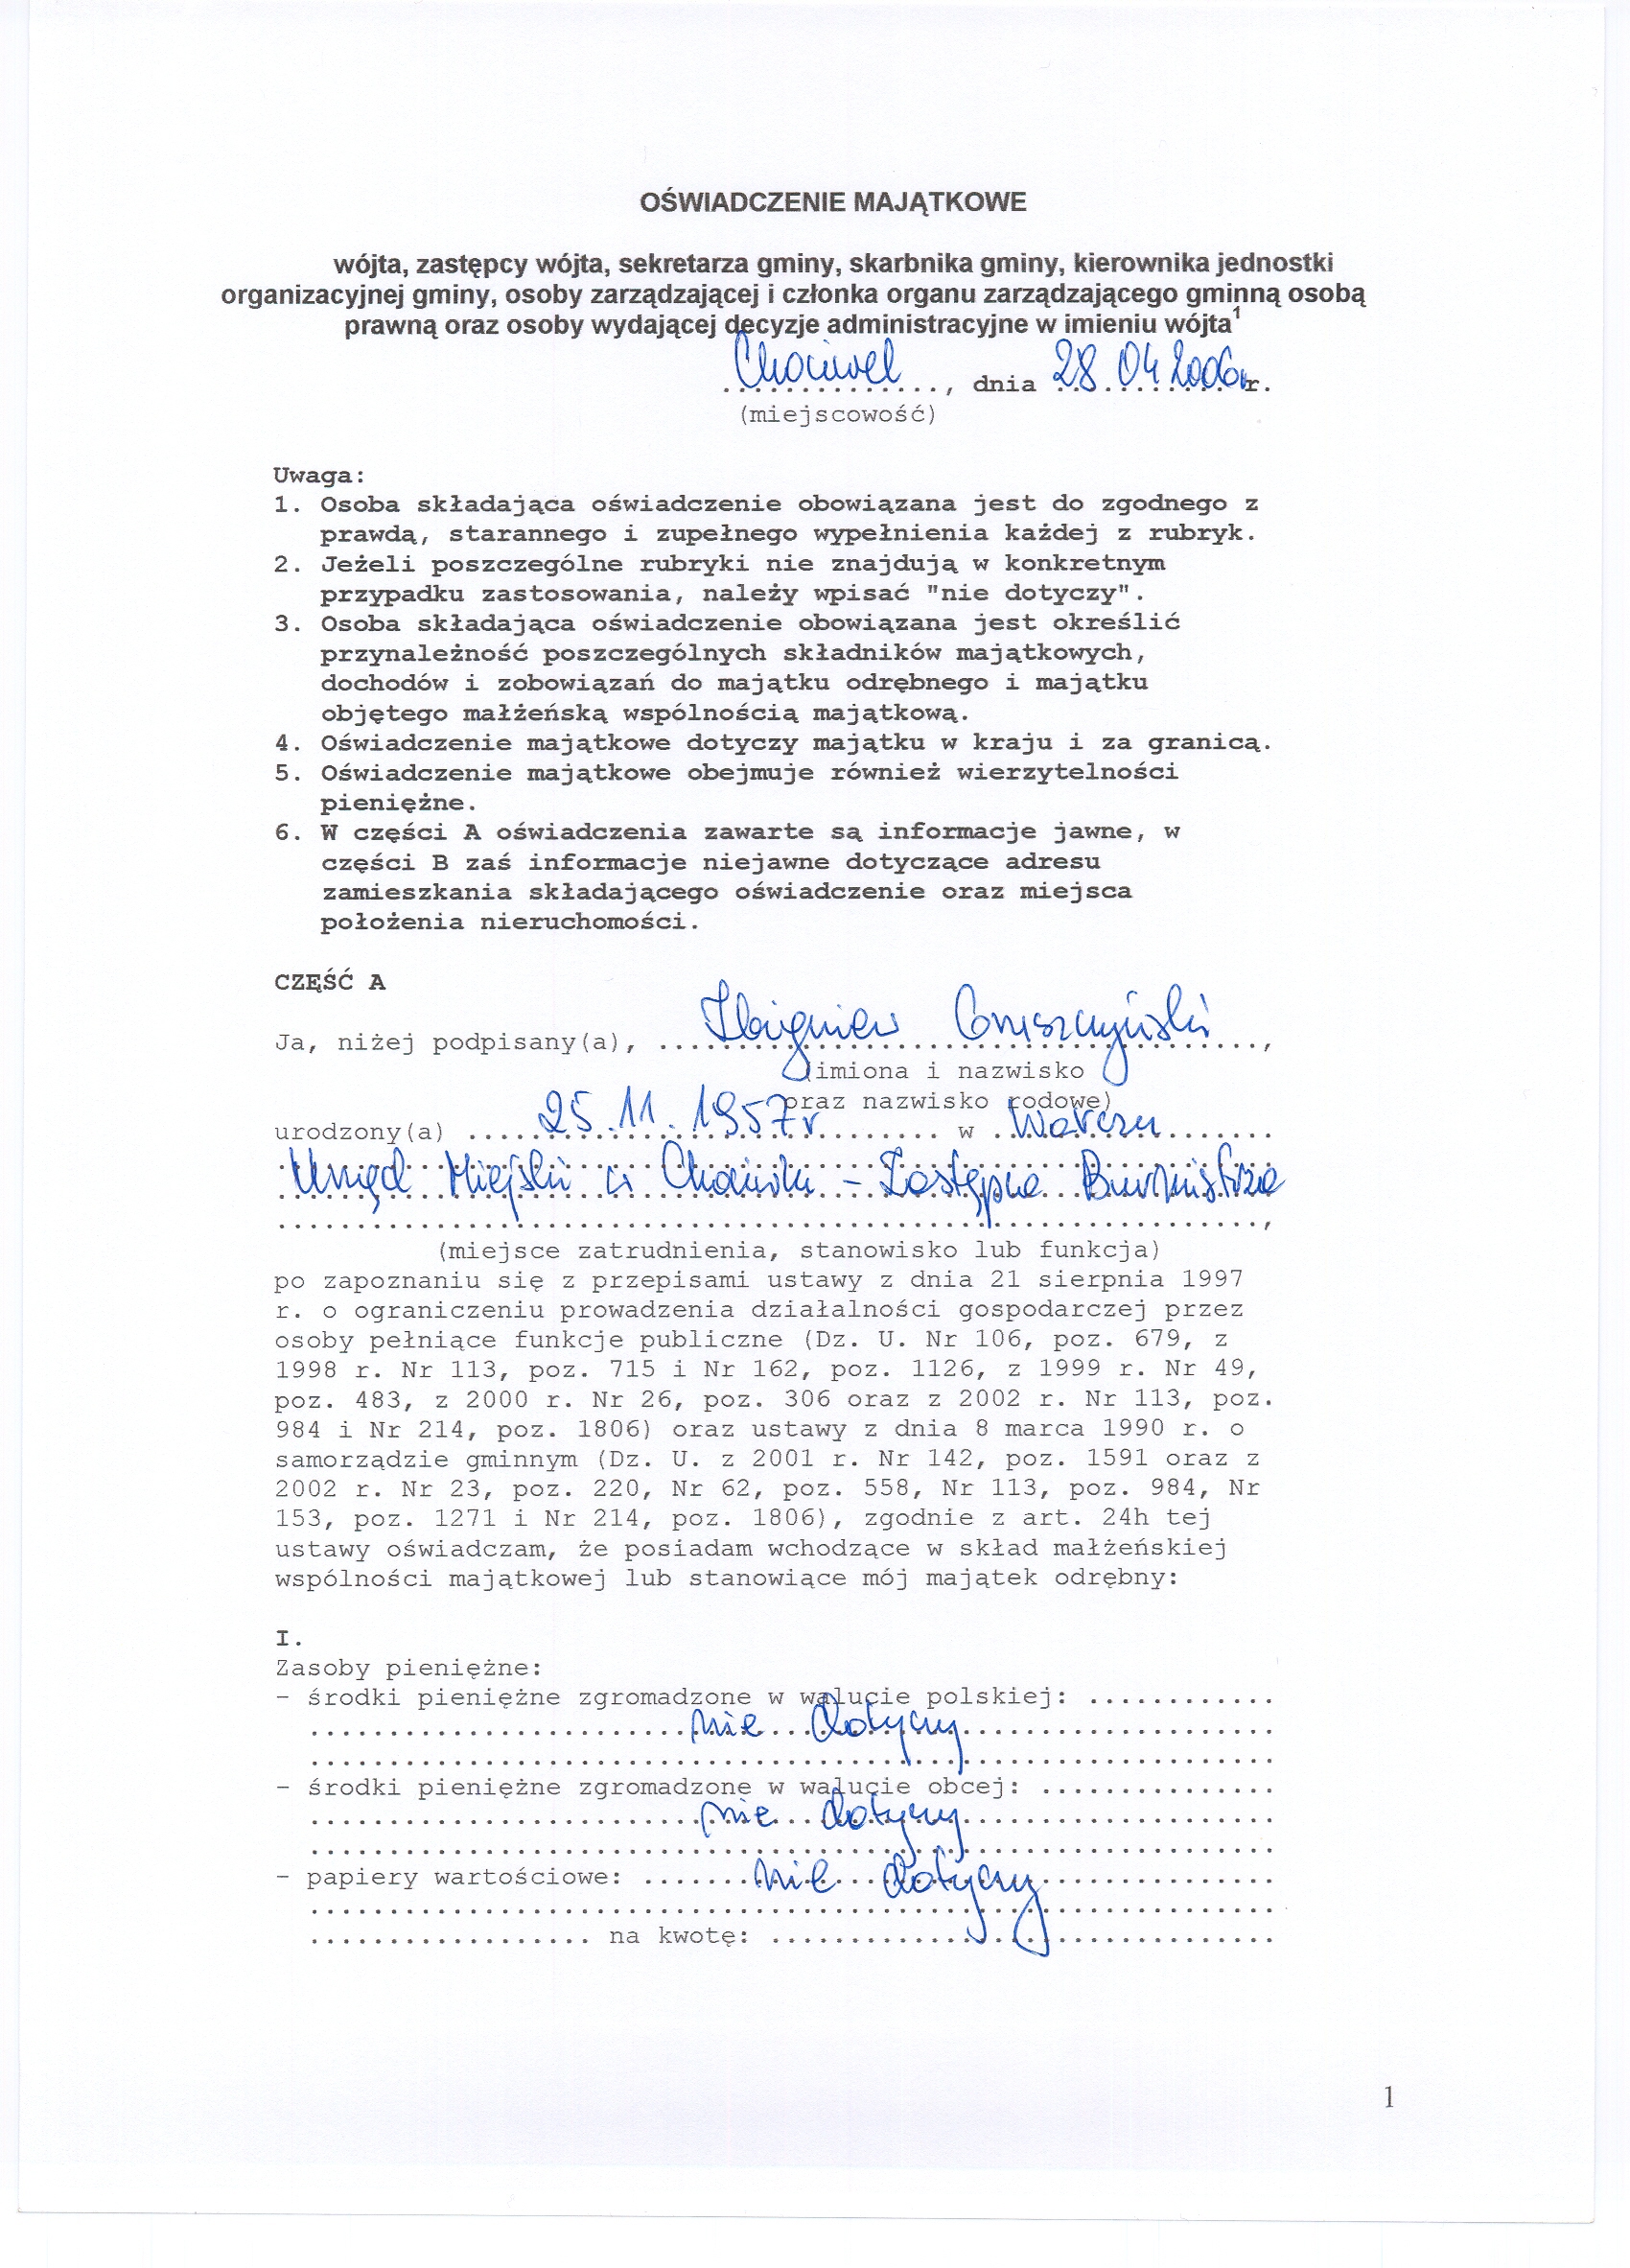 OŚWIADCZENIE MAJĄTKOWE
wójta, zastępcy wójta, sekretarza gminy, skarbnika gminy, kierownika jednostki
organizacyjnej gminy, osoby zarządzającej i członka organu zarządzającego gminną osobą
prawną oraz osoby wydającej decyzje administracyjne w imieniu wójta¹
Chociwel, dnia 28.04.2006 r.
(miejscowość)
Uwaga:
1. Osoba składająca oświadczenie obowiązana jest do zgodnego z
prawdą, starannego i zupełnego wypełnienia każdej z rubryk.
2. Jeżeli poszczególne rubryki nie znajdują w konkretnym
przypadku zastosowania, należy wpisać "nie dotyczy".
3. Osoba składająca oświadczenie obowiązana jest określić
przynależność poszczególnych składników majątkowych,
dochodów i zobowiązań do majątku odrębnego i majątku
objętego małżeńską wspólnością majątkową.
4. Oświadczenie majątkowe dotyczy majątku w kraju i za granicą.
5. Oświadczenie majątkowe obejmuje również wierzytelności
pieniężne.
6. W części A oświadczenia zawarte są informacje jawne, w
części B zaś informacje niejawne dotyczące adresu
zamieszkania składającego oświadczenie oraz miejsca
położenia nieruchomości.
CZĘŚĆ A
Ja, niżej podpisany(a), Zbigniew
(imiona i nazwisko
oraz nazwisko rodowe)
urodzony(a) 25.11.1957r w
Urząd Miejski w Chociwlu - Zastępca Burmistrza
(miejsce zatrudnienia, stanowisko lub funkcja)
po zapoznaniu się z przepisami ustawy z dnia 21 sierpnia 1997
r. o ograniczeniu prowadzenia działalności gospodarczej przez
osoby pełniące funkcje publiczne (Dz. U. Nr 106, poz. 679, z
1998 r. Nr 113, poz. 715 i Nr 162, poz. 1126, z 1999 r. Nr 49,
poz. 483, z 2000 r. Nr 26, poz. 306 oraz z 2002 r. Nr 113, poz.
984 i Nr 214, poz. 1806) oraz ustawy z dnia 8 marca 1990 r. o
samorządzie gminnym (Dz. U. z 2001 r. Nr 142, poz. 1591 oraz z
2002 r. Nr 23, poz. 220, Nr 62, poz. 558, Nr 113, poz. 984, Nr
153, poz. 1271 i Nr 214, poz. 1806), zgodnie z art. 24h tej
ustawy oświadczam, że posiadam wchodzące w skład małżeńskiej
wspólności majątkowej lub stanowiące mój majątek odrębny:
I.
Zasoby pieniężne:
- środki pieniężne zgromadzone w walucie polskiej:
nie dotyczy
- środki pieniężne zgromadzone w walucie obcej:
nie dotyczy
- papiery wartościowe: nie dotyczy
na kwotę:
1